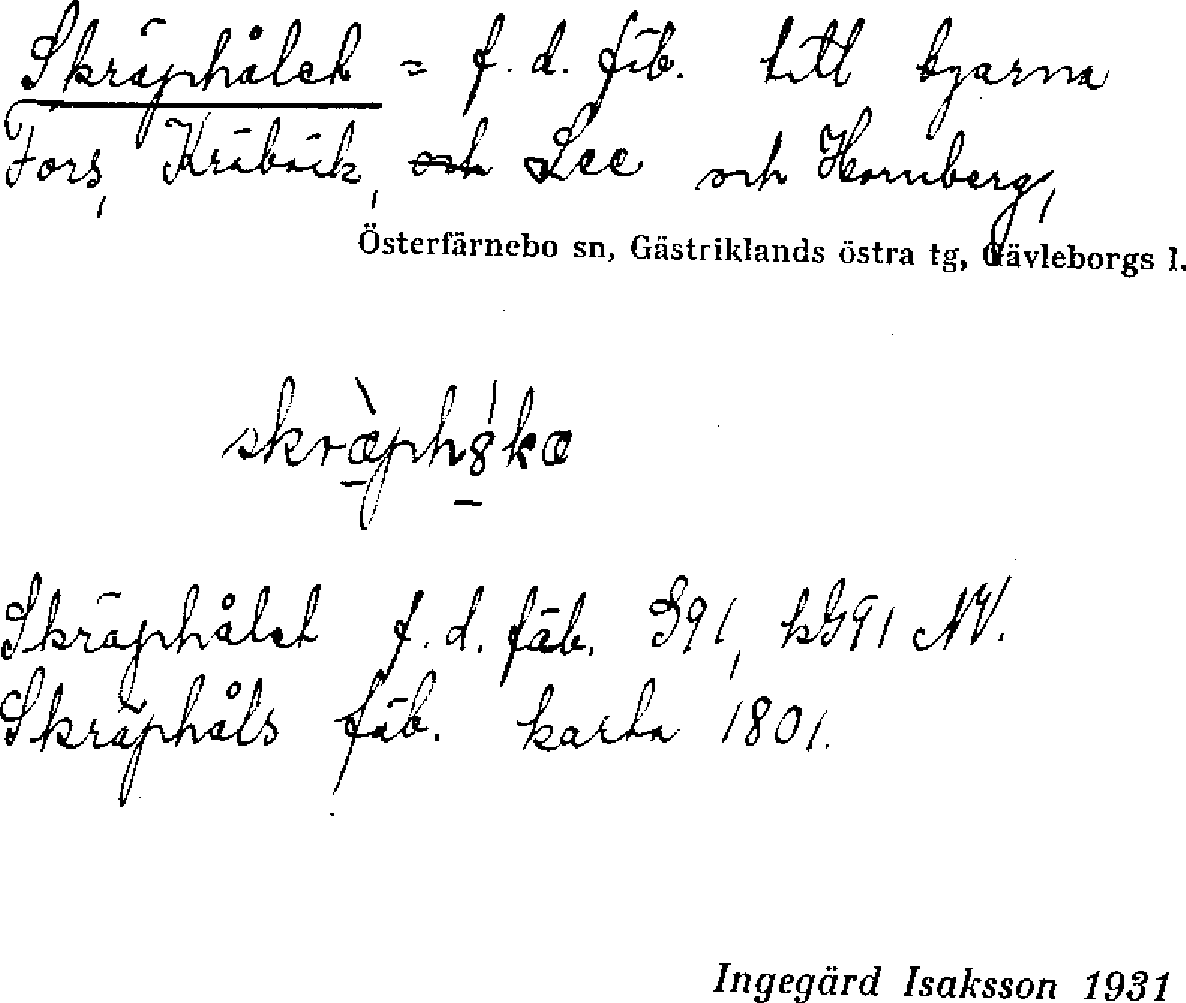 Skräphålet = f. d. fäb. till byarna
Fors, Kräbäck, och Lee och Hornberg,
Österfärnebo sn, Gästriklands östra tg, Gävleborgs l.
Skräphålet f. d. fäb. S91, kG91 NV.
Skräphåls fäb. karta 1801.
Ingegärd Isaksson 1931